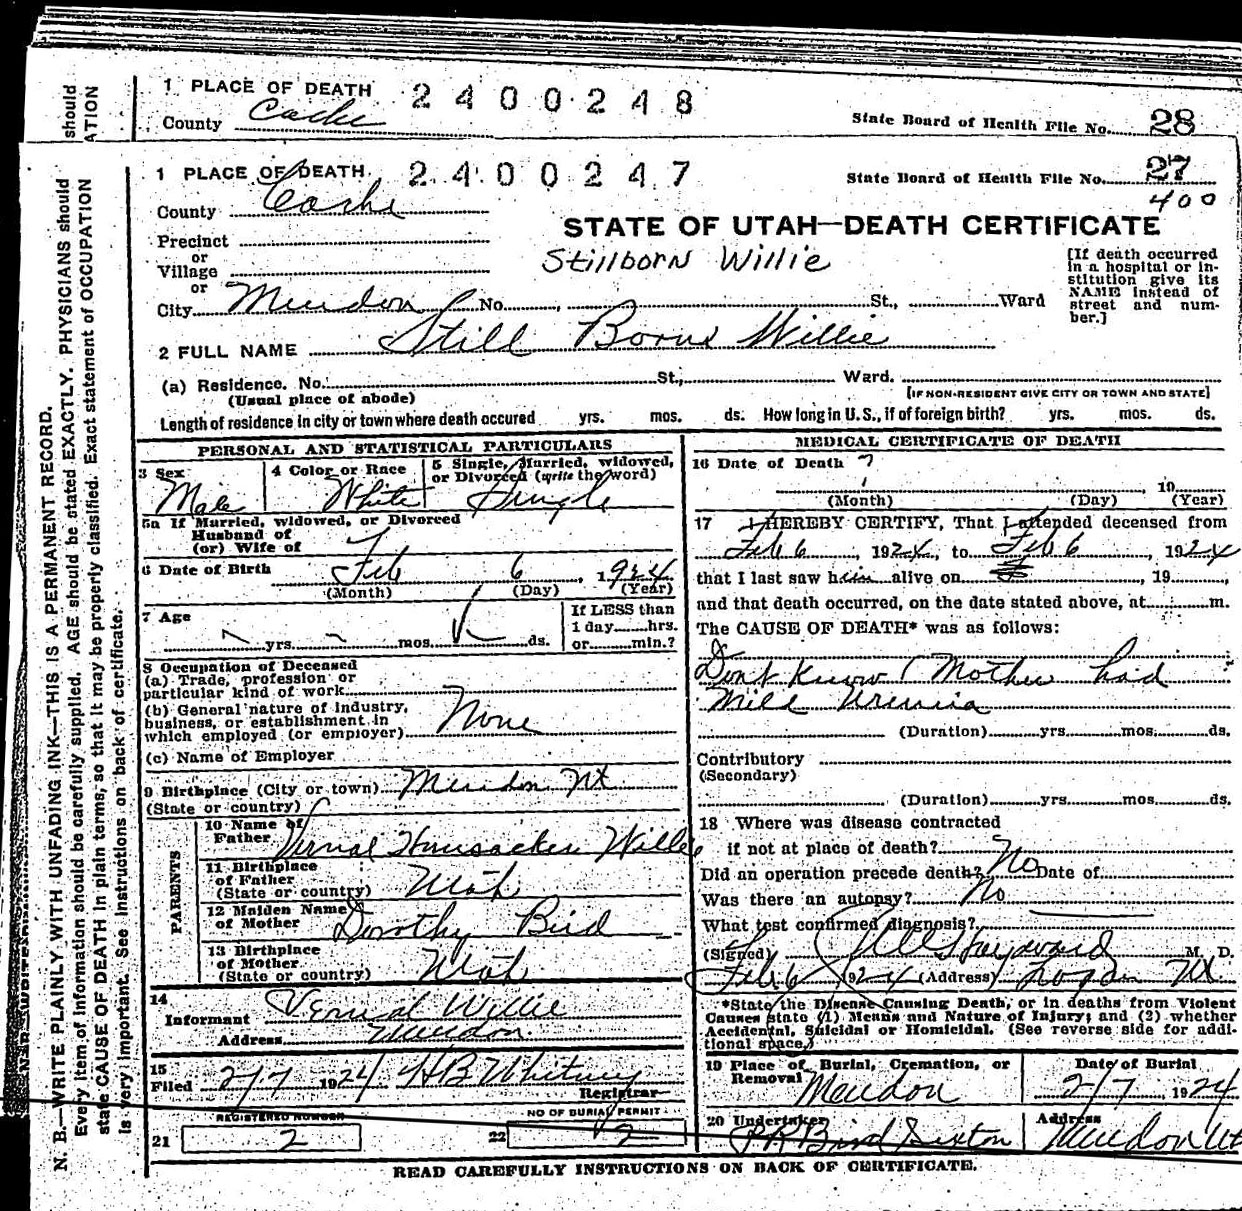 1 PLACE OF DEATH 2400248
County Cache State Board of Health File No. 28
1 PLACE OF DEATH 2400247 State Board of Health File No. 27
County Cache 400
STATE OF UTAH—DEATH CERTIFICATE
Precinct
or
Village
Stillborn Willie
[If death occurred in a hospital or institution give its NAME instead of street and number.]
or
City Mendon No. St., Ward
2 FULL NAME Still Born Willie
(a) Residence. No. St., Ward.
(Usual place of abode) [IF NON-RESIDENT GIVE CITY OR TOWN AND STATE]
Length of residence in city or town where death occured yrs. mos. ds. How long in U. S., if of foreign birth? yrs. mos. ds.
PERSONAL AND STATISTICAL PARTICULARS
3 Sex 4 Color or Race 5 Single, Married, widowed,
or Divorced (write the word)
Male White Single
5a If Married, widowed, or Divorced
Husband of
(or) Wife of
6 Date of Birth Feb 6, 1924
(Month) (Day) (Year)
7 Age yrs. mos. ds.
If LESS than
1 day hrs.
or min.?
8 Occupation of Deceased
(a) Trade, profession or
particular kind of work
(b) General nature of industry,
business, or establishment in
which employed (or employer) None
(c) Name of Employer
9 Birthplace (City or town) Mendon Ut
(State or country)
PARENTS
10 Name of
Father Vernal Hunsacker Willie
11 Birthplace
of Father
(State or country) Utah
12 Maiden Name
of Mother Dorothy Bird
13 Birthplace
of Mother
(State or country) Utah
14
Informant Vernal Willie
Address Mendon
15
Filed 2/7 1924 HB Whitney
Registrar
REGISTERED NUMBER NO OF BURIAL PERMIT
21 2 22 2
MEDICAL CERTIFICATE OF DEATH
16 Date of Death ?
, 19
(Month) (Day) (Year)
17 I HEREBY CERTIFY, That I attended deceased from
Feb 6, 1924, to Feb 6, 1924
that I last saw him alive on , 19 ,
and that death occurred, on the date stated above, at m.
The CAUSE OF DEATH* was as follows:
Dont Know (Mother had
Mild Uremia
(Duration) yrs. mos. ds.
Contributory
(Secondary)
(Duration) yrs. mos. ds.
18 Where was disease contracted
if not at place of death?
Did an operation precede death? No Date of
Was there an autopsy? No
What test confirmed diagnosis?
(Signed) Hayward M. D.
Feb 6 1924 (Address) Logan Ut.
*State the Disease Causing Death, or in deaths from Violent
Causes state (1) Means and Nature of Injury; and (2) whether
Accidental, Suicidal or Homicidal. (See reverse side for addi-
tional space.)
19 Place of Burial, Cremation, or
Removal Mendon
Date of Burial
2/7 1924
20 Undertaker Bird Sexton
Address Mendon Ut
READ CAREFULLY INSTRUCTIONS ON BACK OF CERTIFICATE.
N. B.—WRITE PLAINLY WITH UNFADING INK—THIS IS A PERMANENT RECORD.
Every item of information should be carefully supplied. AGE should be stated EXACTLY. PHYSICIANS should
state CAUSE OF DEATH in plain terms, so that it may be properly classified. Exact statement of OCCUPATION
is very important. See instructions on back of certificate.
should
ATION